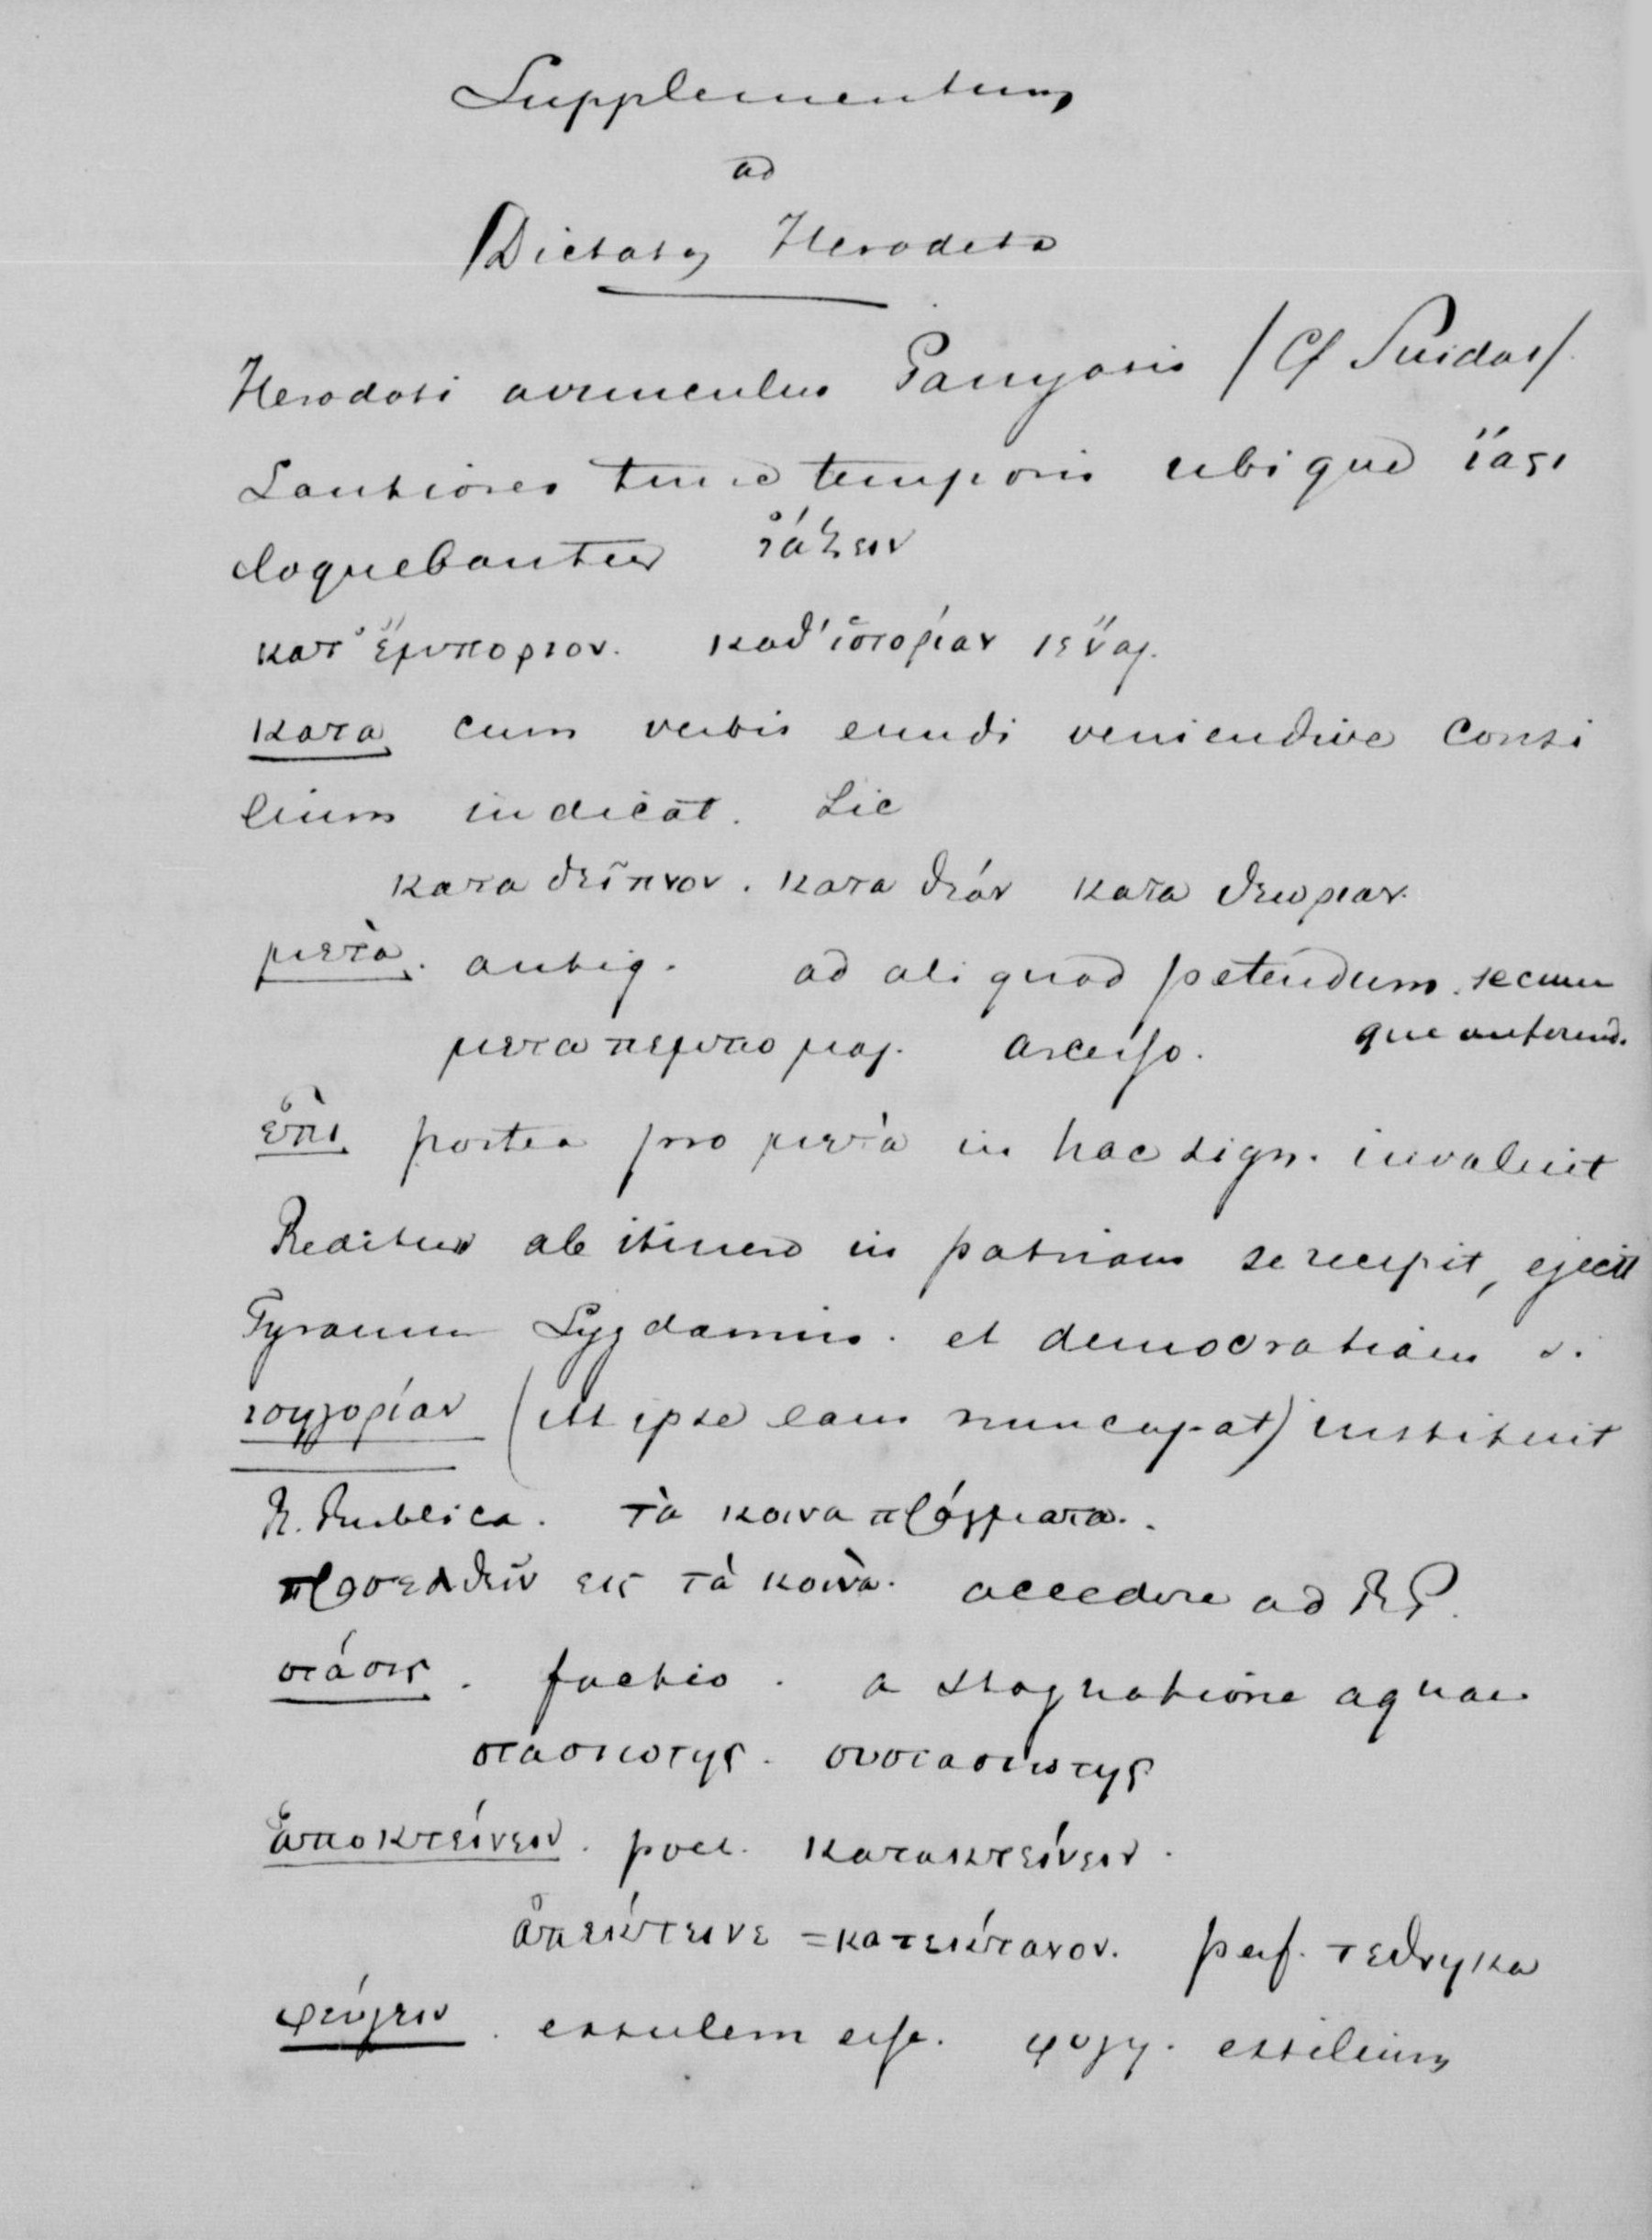 Supplementum
ad
Dictata Herodoto
Herodoti avunculus Panyasis /Cf Suidas/.
Lautiores tunc temporis ubique ἰάσι
loquebantur ἰάζειν
κατ' ἐμποριον. καθ' ἱστορίαν ἰέναι.
κατα cum verbis eundi veniendive consi
lium indicat. Sic
κατα δεῖπνον. κατα θεάν κατα θεωριαν.
μετὰ. antiq. ad aliquod petendum. secum
μεταπεμπομαι. arcesso. que auferend.
ἐπὶ postea pro μετὰ in hac sign. invaluit
Reditus ab itinere in patriam se recepit, ejecit
Tyrannum Lygdamis. et democratiam s.
ισηγορίαν (ut ipse eam nuncupat) instituit
R. Publica. τὰ κοινα πράγματα.
προσελθεῖν εις τὰ κοινὰ. accedere ad R.P.
στάσις. factio. a stagnatione aquae.
στασιωτης. συστασιωτης
ἀποκτείνειν. poet. κατακτείνειν.
ἀπέκτεινε = κατέκτανον. perf. τεθνηκα
φεύγειν. exsulem esse. φυγη. exsilium